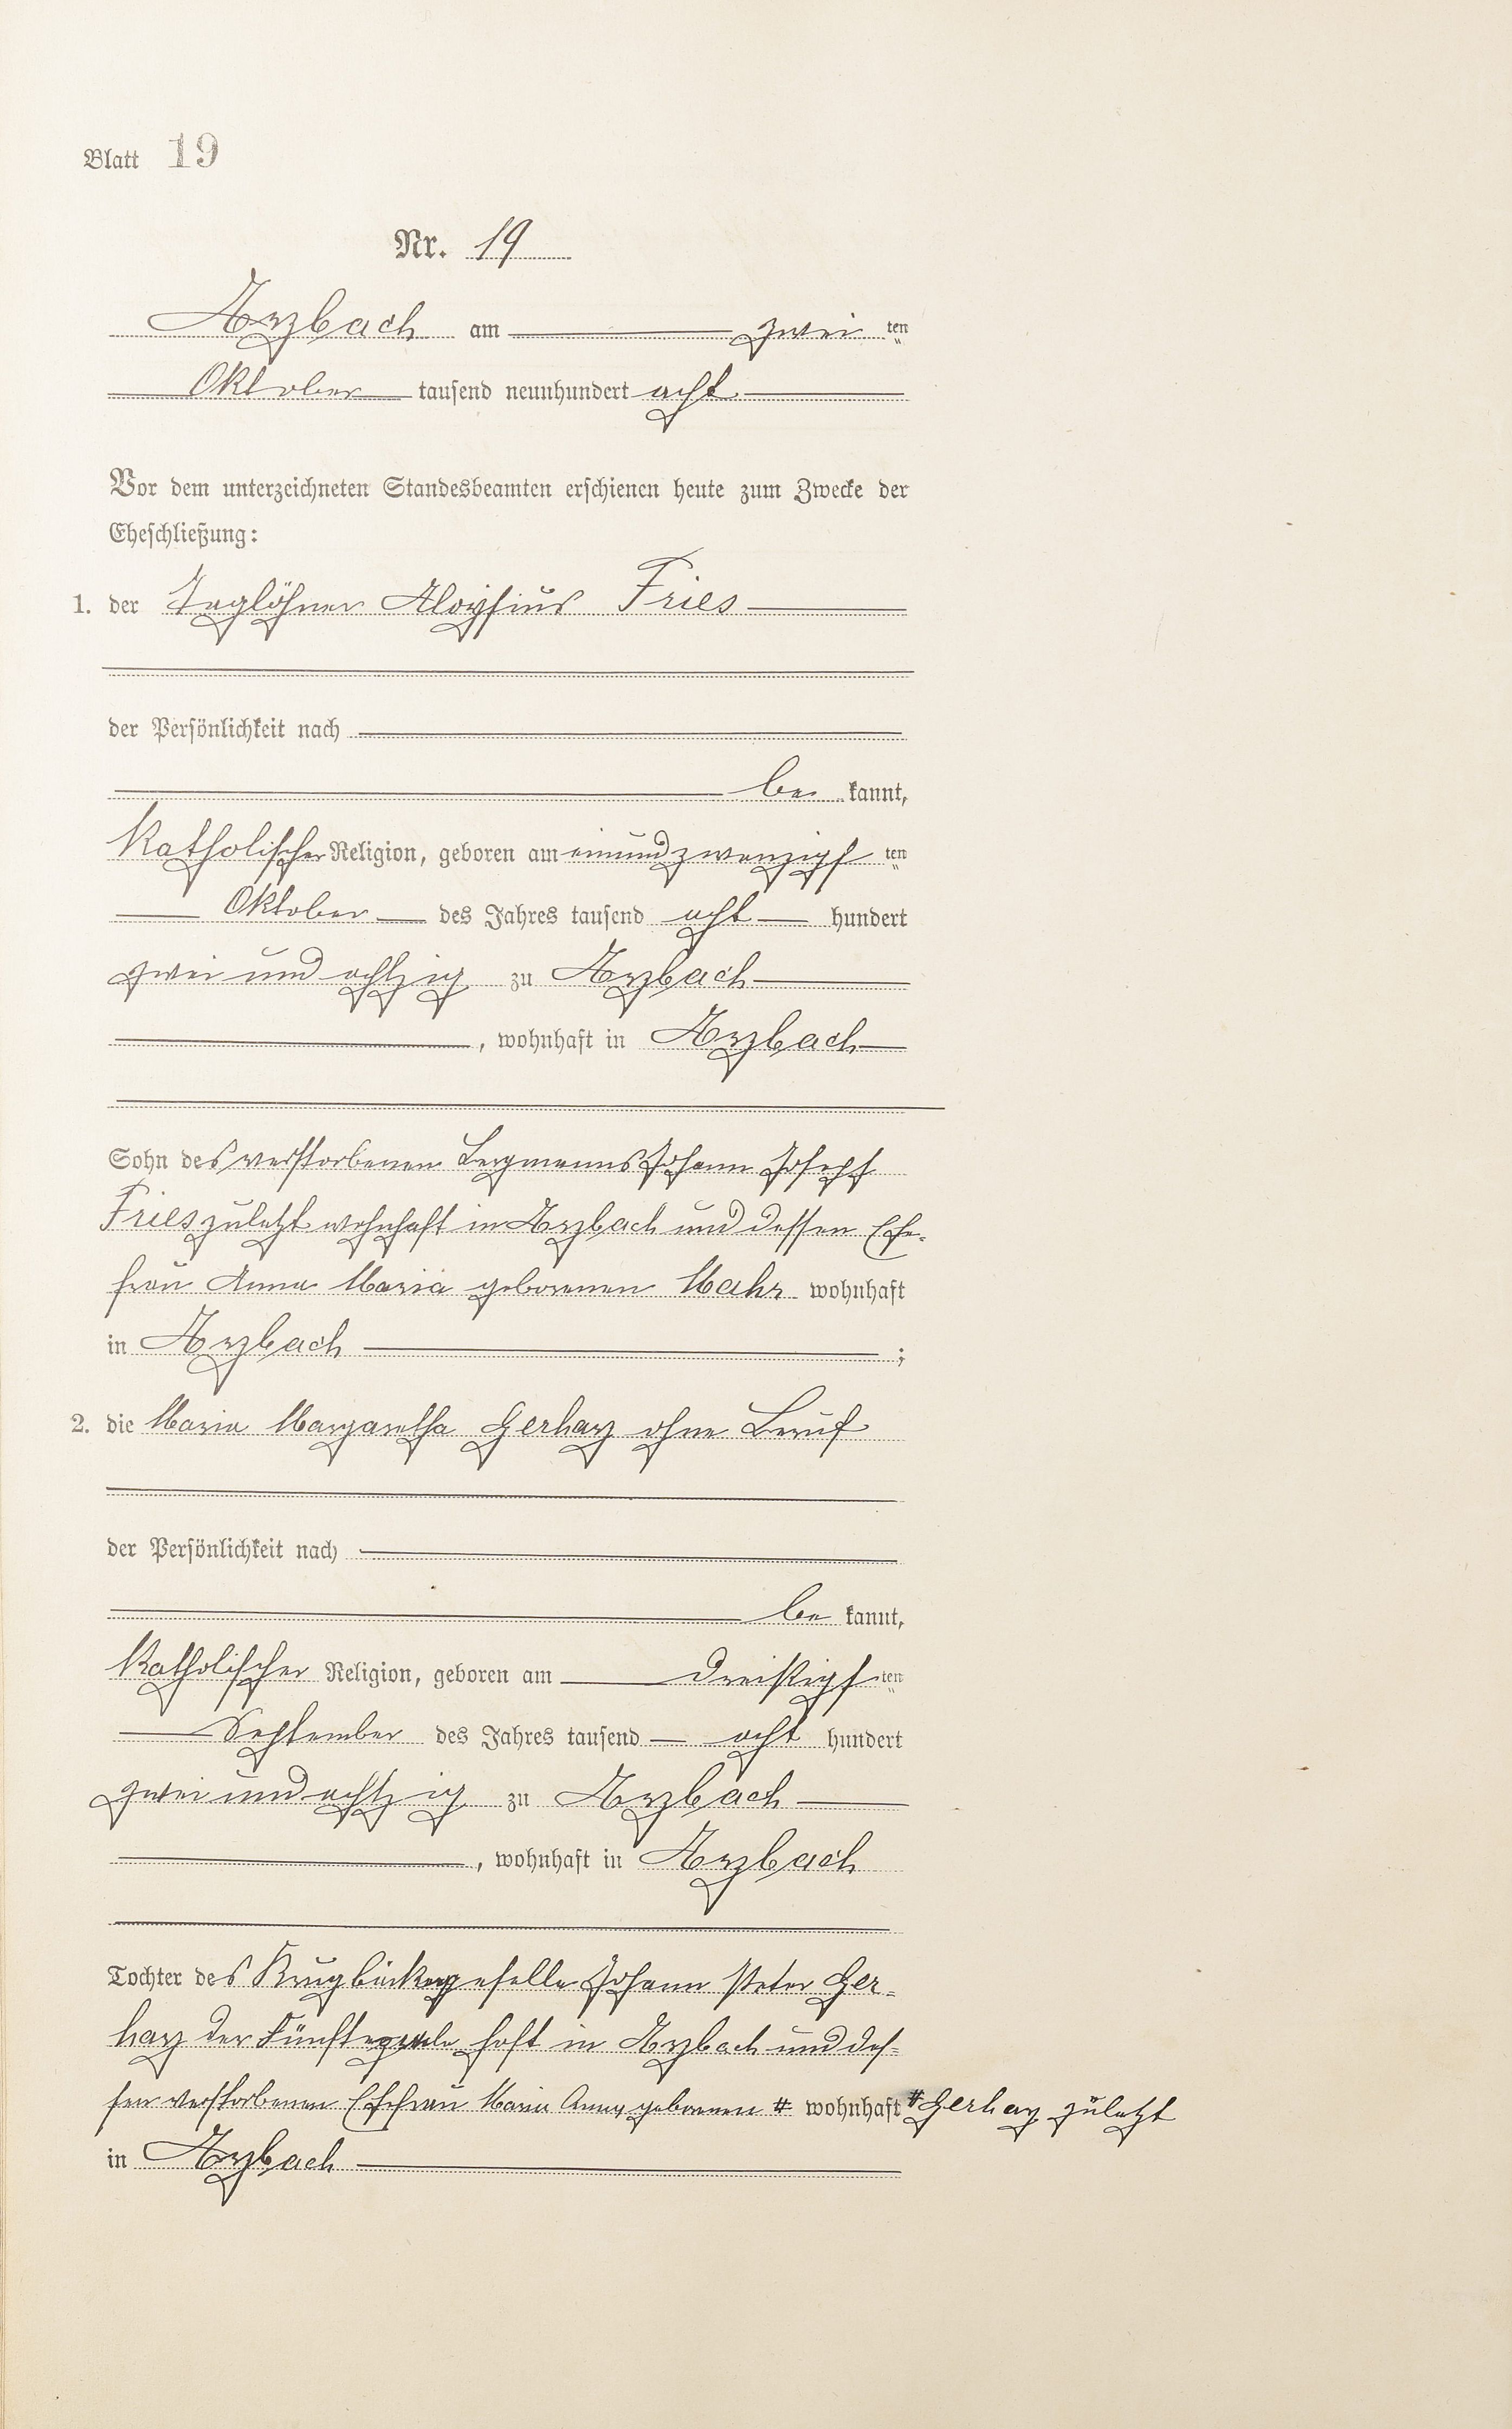 Blatt 19
Nr. 19
Arzbach am zwei ten
Oktober tausend neunhundert acht
Vor dem unterzeichneten Standesbeamten erschienen heute zum Zwecke der
Eheschließung:
1. der Taglöhner Aloysius Fries
der Persönlichkeit nach
be kannt,
Katholischer Religion, geboren am einundzwanzigs ten
Oktober des Jahres tausend acht hundert
zwei und achtzig zu Arzbach
, wohnhaft in Arzbach
Sohn des verstorbenen Bergmanns Johann Joseph
Fries zuletzt wohnhaft in Arzbach und dessen Ehe-
frau Anna Maria geborenen Mahr wohnhaft
in Arzbach ;
2. die Maria Margaretha Gerharz ohne Beruf
der Persönlichkeit nach
be kannt,
Katholischer Religion, geboren am dreißigs ten
September des Jahres tausend acht hundert
zwei und achtzig zu Arzbach
, wohnhaft in Arzbach
Tochter des Krugbäckergeselle Johann Peter Ger-
harz der Fünfte haft in Arzbach und des-
sen verstorbenen Ehefrau Maria Anna geborenen # wohnhaft # Gerharz zuletzt
in Arzbach